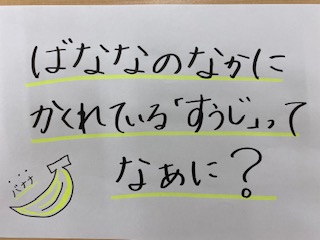 ばななのなかに
かくれている「すうじ」って
なぁに?
バナナ